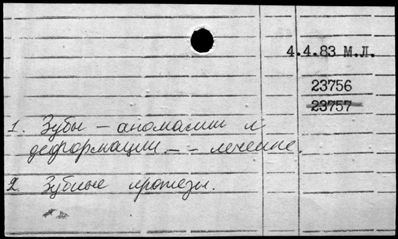 4.4.83 М.Л.
23756
23757
1. Зубы - аномалии и
деформации - - лечение.
2. Зубные протезы.